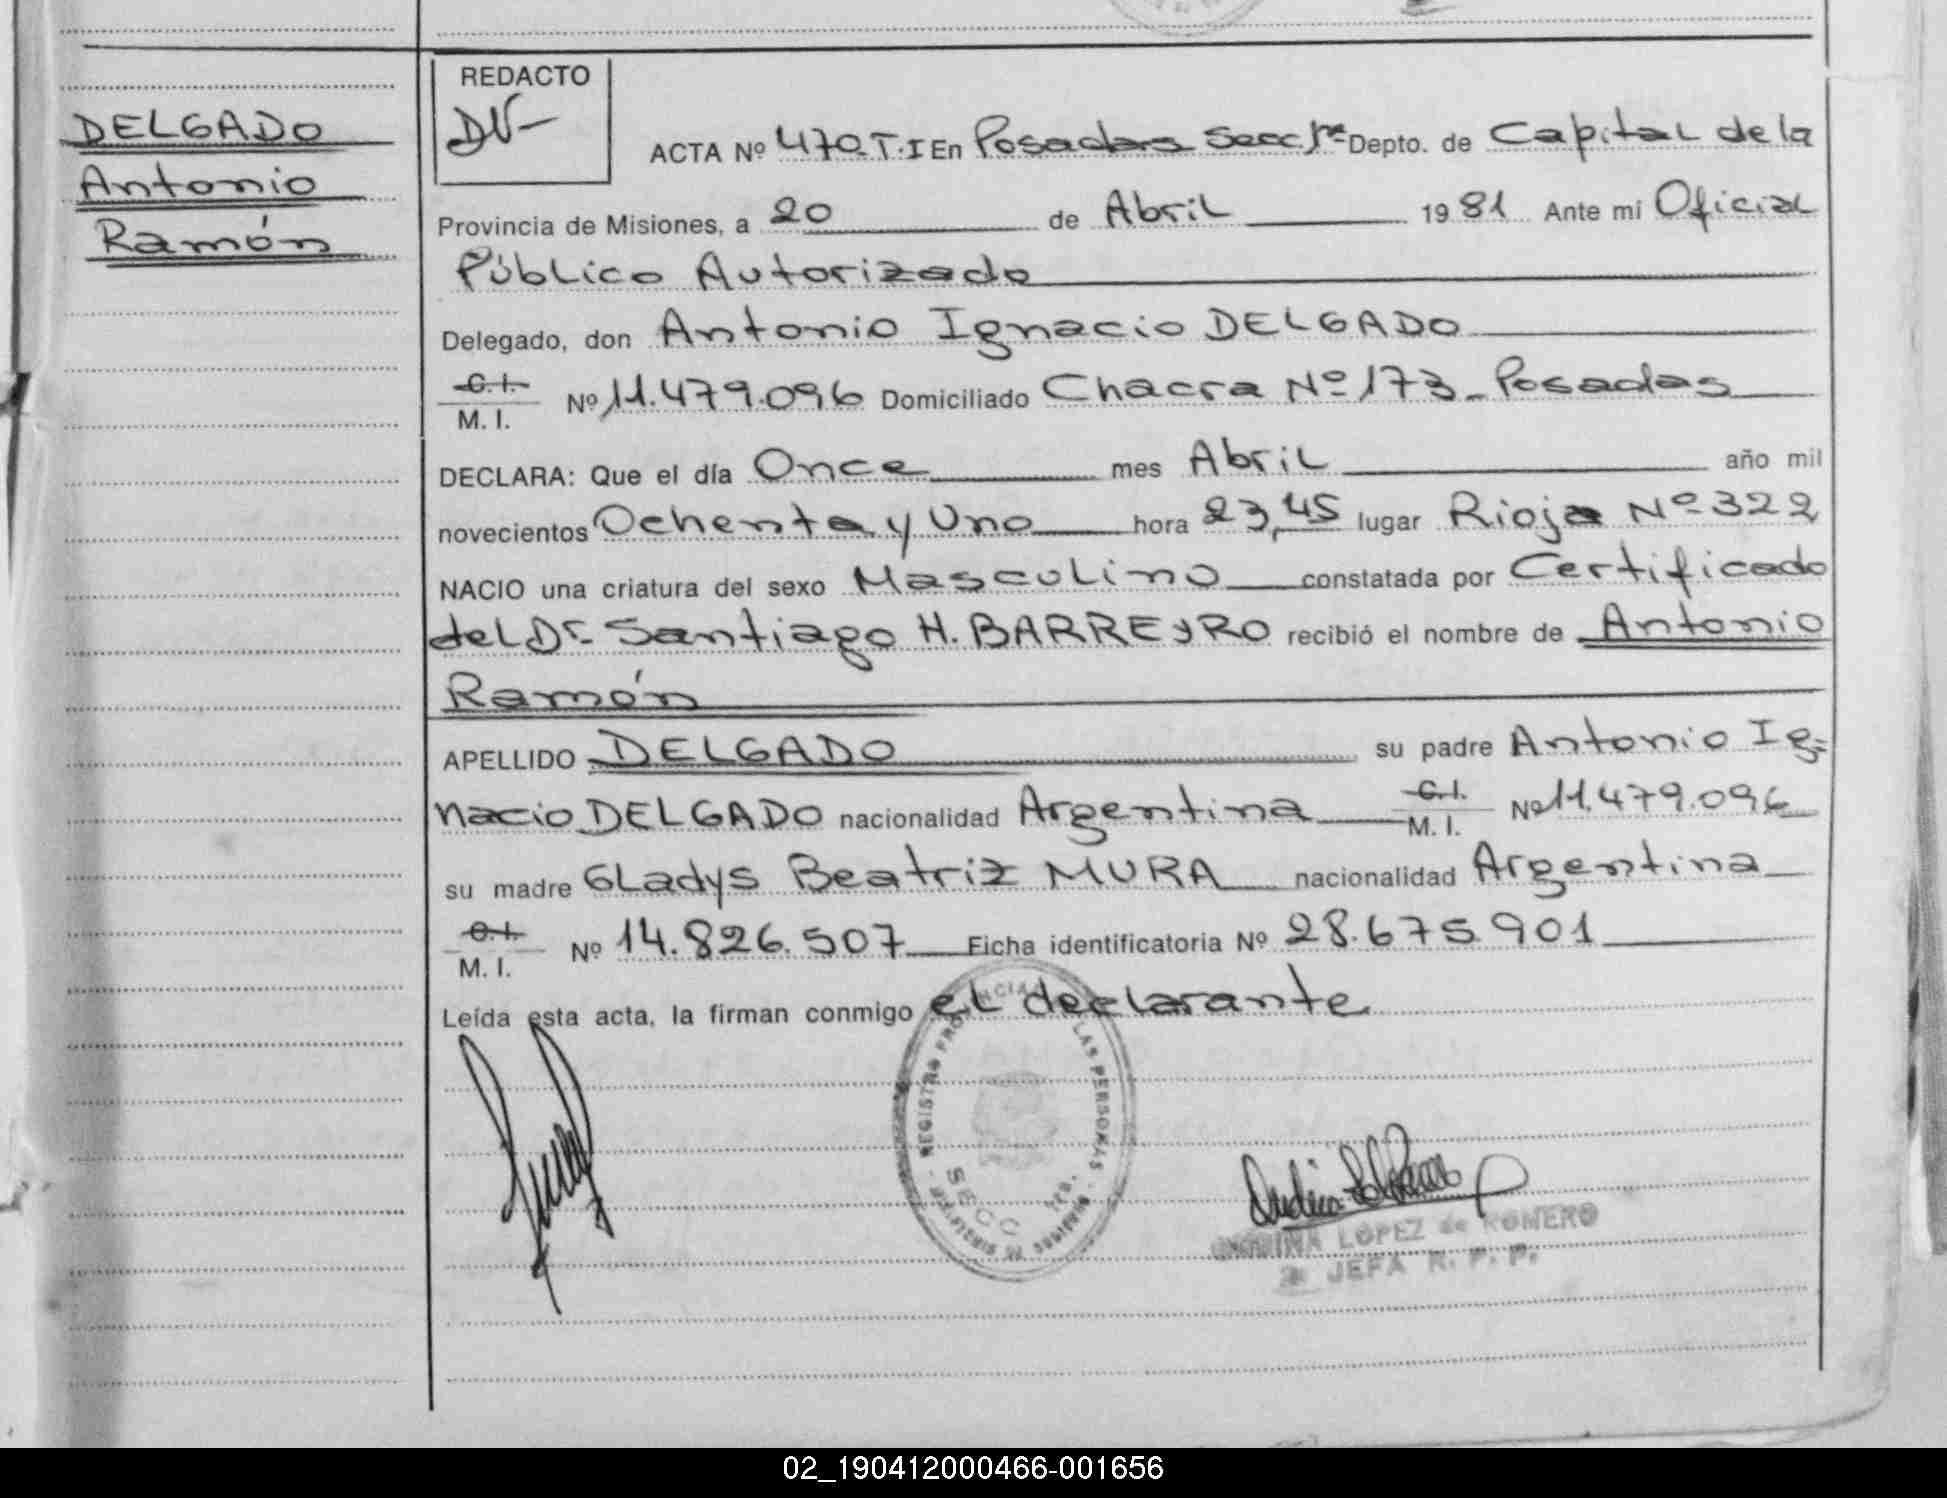 DELGADO
Antonio
Ramón
REDACTO
DV-
ACTA Nº 470.T.I En Posadas Secc. 1ra Depto. de Capital de la
Provincia de Misiones, a 20 de Abril 1981 Ante mí Oficial
Público Autorizado
Delegado, don Antonio Ignacio DELGADO
C.I.
M.I. Nº 11.479.096 Domiciliado Chacra Nº 173 - Posadas
DECLARA: Que el día Once mes Abril año mil
novecientos Ochenta y Uno hora 23,45 lugar Rioja Nº 322
NACIO una criatura del sexo Masculino constatada por Certificado
del Dr. Santiago H. BARREYRO recibió el nombre de Antonio
Ramón
APELLIDO DELGADO su padre Antonio Ig=
nacio DELGADO nacionalidad Argentina C.I. M.I. Nº 11.479.096
su madre Gladys Beatriz MURA nacionalidad Argentina
C.I.
M.I. Nº 14.826.507 Ficha identificatoria Nº 28.675.901
Leída esta acta, la firman conmigo el declarante
REGISTRO PROVINCIAL LAS PERSONAS
SECC 1ra.
LOPEZ de ROMERO
JEFA R. P. P.
02_190412000466-001656